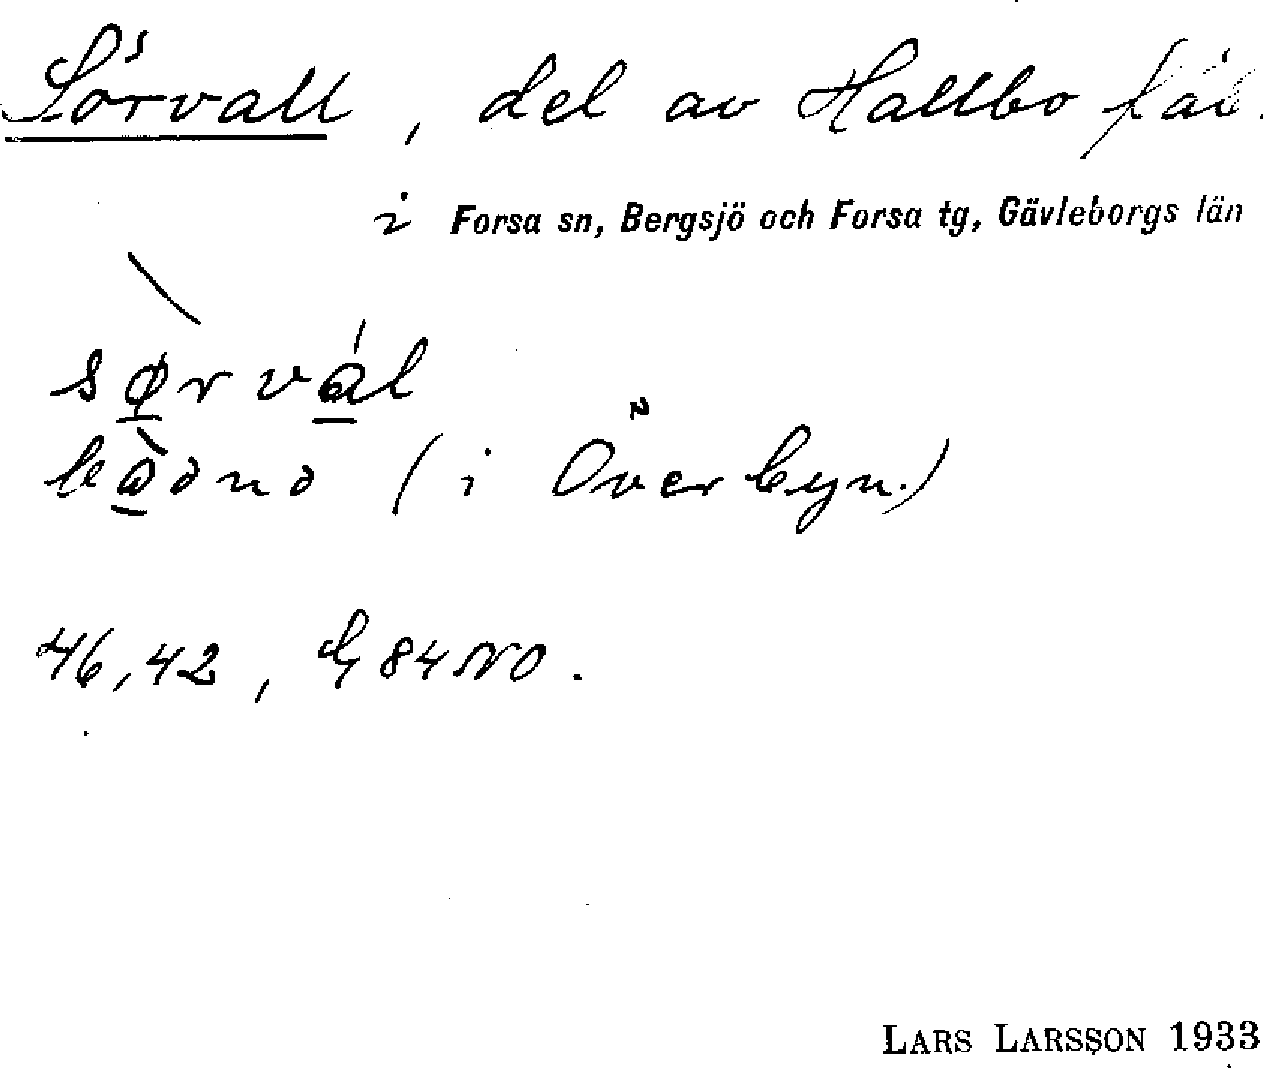 Sörvall, del av Hallbo fäb.
i Forsa sn, Bergsjö och Forsa tg, Gävleborgs län
sø̠rva̠l
(i Överbyn.)
46,42, G 84 NO.
LARS LARSSON 1933